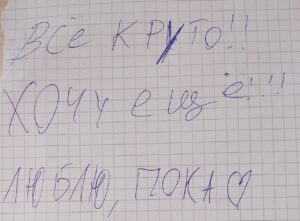 ВСЁ КРУТО!!
ХОЧУ ЕЩЁ!!!
ЛЮБЛЮ, ПОКА♡